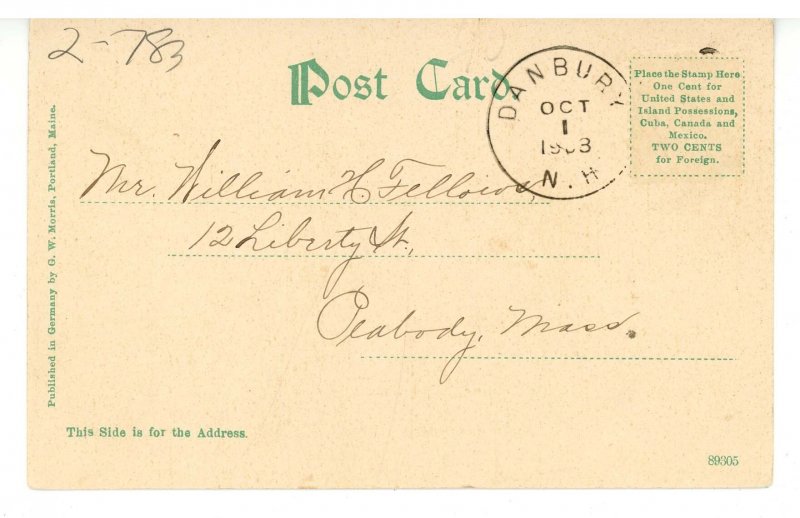 2-783
Post Card
DANBURY
OCT
1
N. H
Place the Stamp Here
One Cent for
United States and
Island Possessions,
Cuba, Canada and
Mexico.
TWO CENTS
for Foreign.
Published in Germany by G. W. Morris, Portland, Maine.
Mr. William H Fellows,
12 Liberty St.,
Peabody, Mass.
This Side is for the Address.
89305